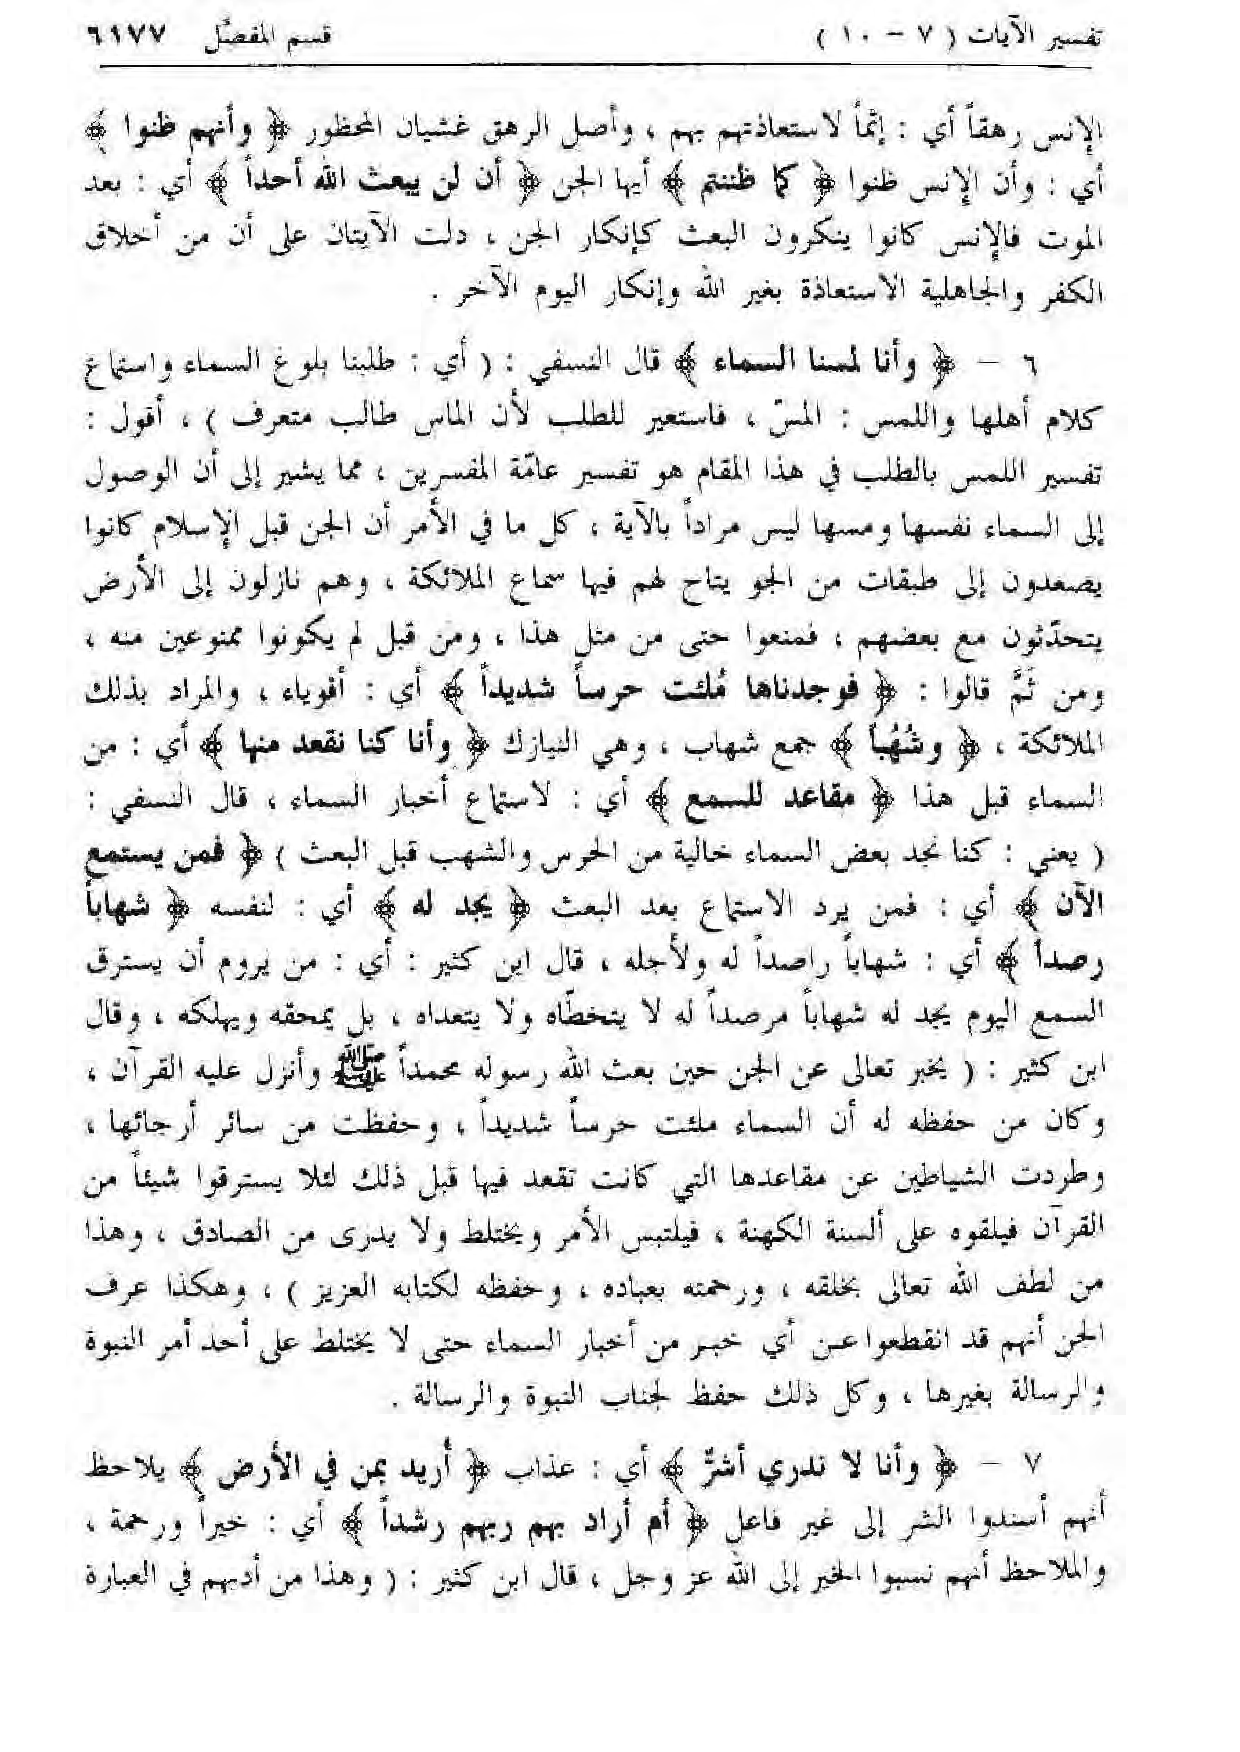 تفسير الآيات ( ٧ - ١٠ ) قسم المفصَّل ٦١٧٧
الإنس رهقاً أي : إثماً لاستعاذتهم بهم ، وأصل الرهق غشيان المحظور ﴿ وأنهم ظنوا ﴾
أي : وأن الإنس ظنوا ﴿ كما ظننتم ﴾ أيها الجن ﴿ أن لن يبعث الله أحداً ﴾ أي : بعد
الموت فالإنس كانوا ينكرون البعث كإنكار الجن ، دلت الآيتان على أن من أخلاق
الكفر والجاهلية الاستعاذة بغير الله وإنكار اليوم الآخر .
٦ - ﴿ وأنا لمسنا السماء ﴾ قال النسفي : ( أي : طلبنا بلوغ السماء واستماع
كلام أهلها واللمس : المسّ ، فاستعير للطلب لأن الماس طالب متعرف ) ، أقول :
تفسير اللمس بالطلب في هذا المقام هو تفسير عامّة المفسرين ، مما يشير إلى أن الوصول
إلى السماء نفسها ومسها ليس مراداً بالآية ، كل ما في الأمر أن الجن قبل الإسلام كانوا
يصعدون إلى طبقات من الجو يتاح لهم فيها سماع الملائكة ، وهم نازلون إلى الأرض
يتحدّثون مع بعضهم ، فمنعوا حتى من مثل هذا ، ومن قبل لم يكونوا ممنوعين منه ،
ومن ثَمَّ قالوا : ﴿ فوجدناها مُلئت حرساً شديداً ﴾ أي : أقوياء ، والمراد بذلك
الملائكة ، ﴿ وشُهُباً ﴾ جمع شهاب ، وهي النيازك ﴿ وأنا كنا نقعد منها ﴾ أي : من
السماء قبل هذا ﴿ مقاعد للسمع ﴾ أي : لاستماع أخبار السماء ، قال النسفي :
( يعني : كنا نجد بعض السماء خالية من الحرس والشهب قبل البعث ) ﴿ فمن يستمع
الآن ﴾ أي : فمن يرد الاستماع بعد البعث ﴿ يجد له ﴾ أي : لنفسه ﴿ شهاباً
رصداً ﴾ أي : شهاباً راصداً له ولأجله ، قال ابن كثير : أي : من يروم أن يسترق
السمع اليوم يجد له شهاباً مرصداً له لا يتخطّاه ولا يتعداه ، بل يمحقه ويهلكه ، وقال
ابن كثير : ( يخبر تعالى عن الجن حين بعث الله رسوله محمداً ﷺ وأنزل عليه القرآن ،
وكان من حفظه له أن السماء ملئت حرساً شديداً ، وحفظت من سائر أرجائها ،
وطردت الشياطين عن مقاعدها التي كانت تقعد فيها قبل ذلك لئلا يسترقوا شيئاً من
القرآن فيلقوه على ألسنة الكهنة ، فيلتبس الأمر ويختلط ولا يدرى من الصادق ، وهذا
من لطف الله تعالى بخلقه ، ورحمته بعباده ، وحفظه لكتابه العزيز ) ، وهكذا عرف
الجن أنهم قد انقطعوا عن أي خبر من أخبار السماء حتى لا يختلط على أحد أمر النبوة
والرسالة بغيرها ، وكل ذلك حفظ لجناب النبوة والرسالة .
٧ - ﴿ وأنا لا ندري أشرٌّ ﴾ أي : عذاب ﴿ أُريد بمن في الأرض ﴾ يلاحظ
أنهم أسندوا الشر إلى غير فاعل ﴿ أم أراد بهم ربهم رشداً ﴾ أي : خيراً ورحمة ،
والملاحظ أنهم نسبوا الخير إلى الله عز وجل ، قال ابن كثير : ( وهذا من أدبهم في العبارة